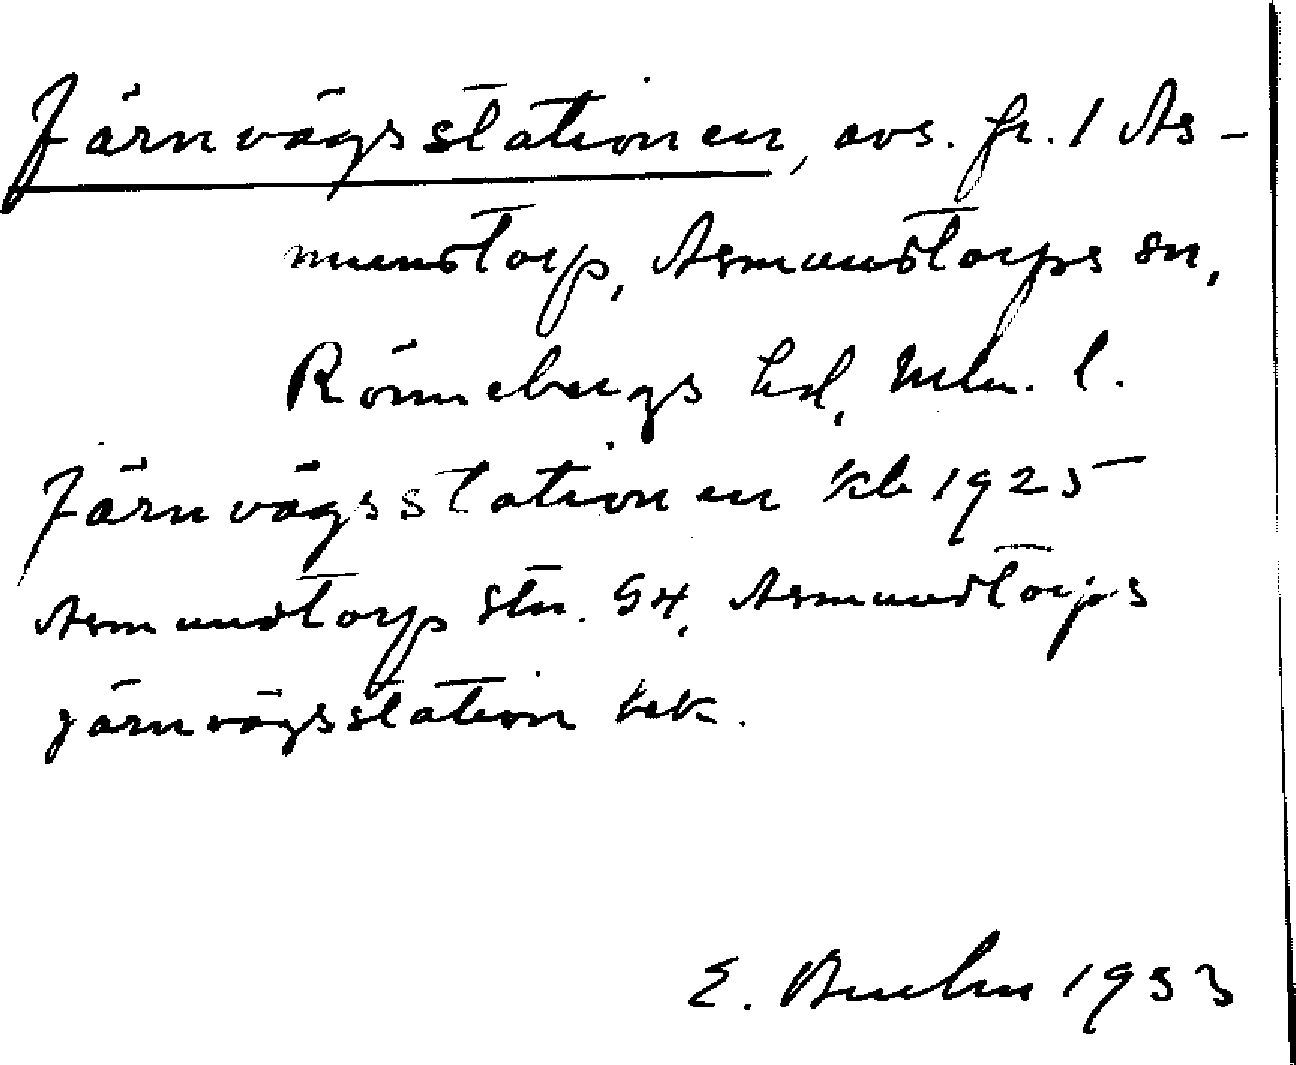 Järnvägsstationen, avs. fr. 1 As-
mundtorp, Asmundtorps sn,
Rönnebergs hd, Mlm. l.
Järnvägsstationen kb 1925
Asmundtorp Stn. GK, Asmundtorps
järnvägsstation tek.
E. 1933